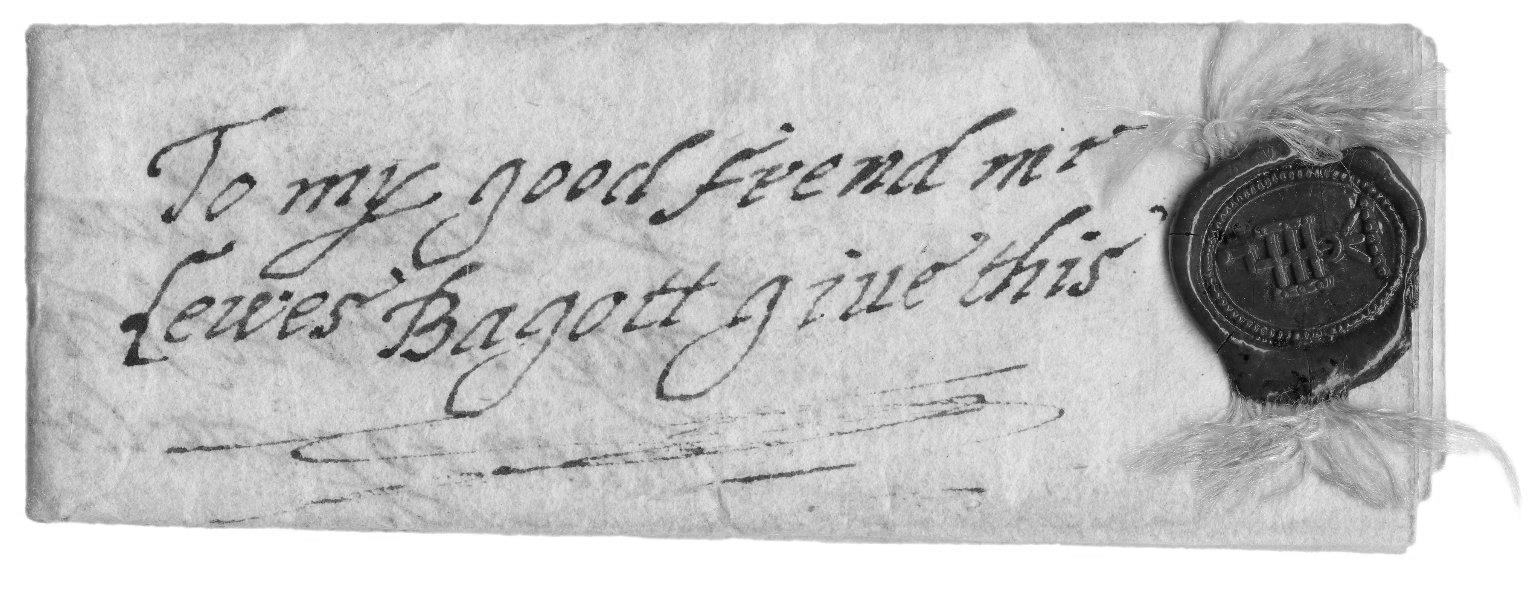 To my good frend mr
Lewes Bagott giue this